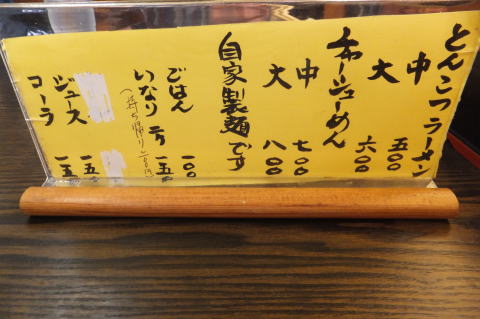 とんこつラーメン
中 五〇〇
大 六〇〇
チャーシューめん
中 七〇〇
大 八〇〇
自家製麺です
ごはん 一〇〇
いなり 二ケ 一五〇
(持ち帰り一〇〇円)
ジュース 一五〇
コーラ 一五〇